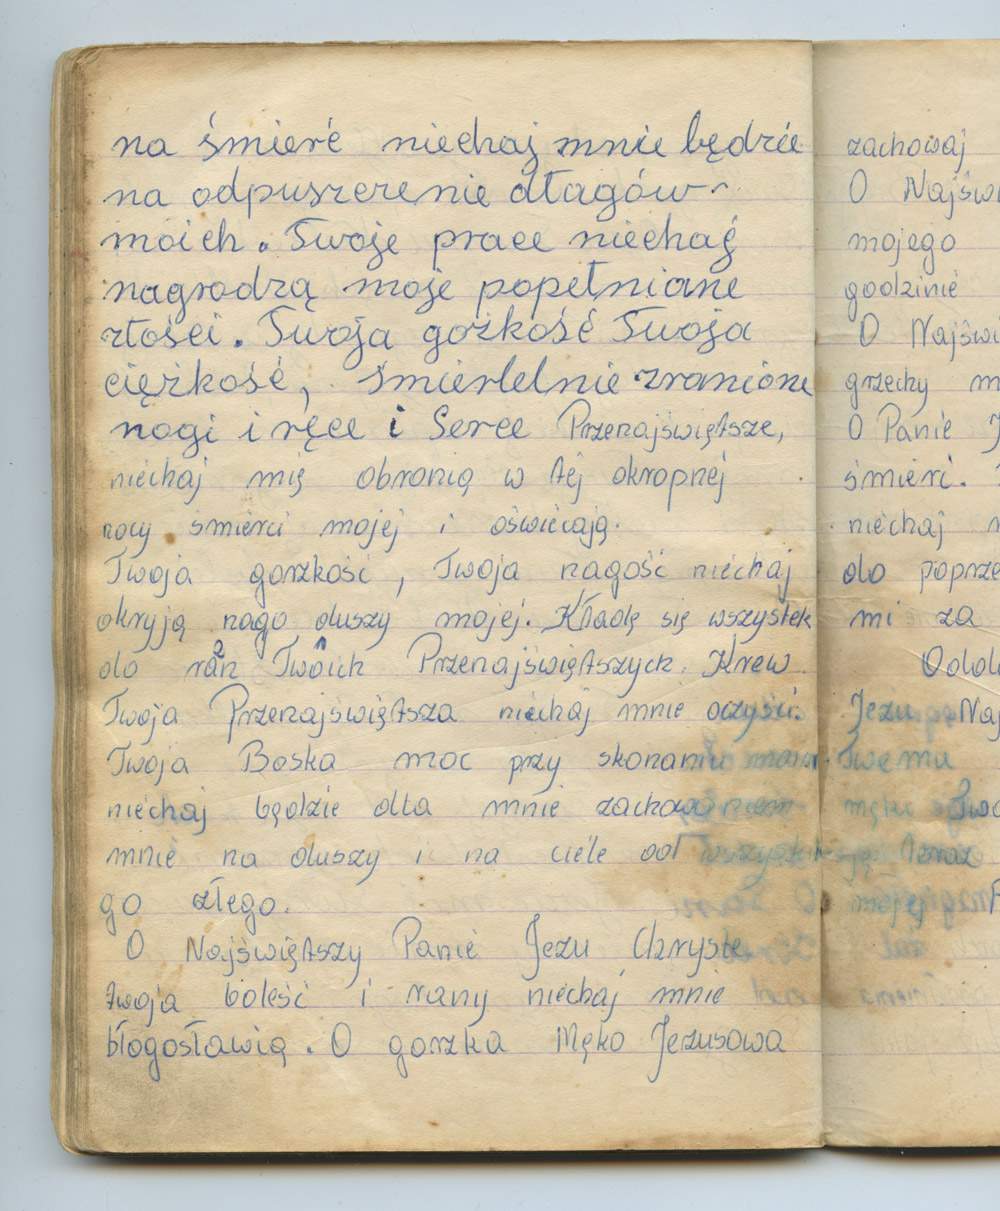 na śmierć niechaj mnie będzie
na odpuszczenie dłagów
moich. Twoje prace niechaj
nagrodzą moje popełniane
złości. Twoja gożkość Twoja
ciężkość, śmiertelnie zranione
nogi i ręce i Serce Przenajświętsze,
niechaj mię obronią w tej okropnej
nocy śmierci mojej i oświecają.
Twoja gorzkość, Twoja nagość niechaj
okryją nago duszy mojej. Kładę się wszystek
do ran Twoich Przenajświętszych. Krew
Twoja Przenajświętsza niechaj mnie oczyści.
Twoja Boska moc przy skonaniu moim
niechaj będzie dla mnie zachowaniem
mnie na duszy i na ciele od wszystkie
go złego.
O Najświętszy Panie Jezu Chryste
twoja boleść i rany niechaj mnie
błogosławią. O gorzka Męko Jezusowa
zachowaj
O Najświ
mojego
godzinie
O Najświ
grzechy m
O Panie J
śmierci.
niechaj
do poprze
mi za
Odda
Jezu Naj
Twemu
męki Two
teraz
mojej